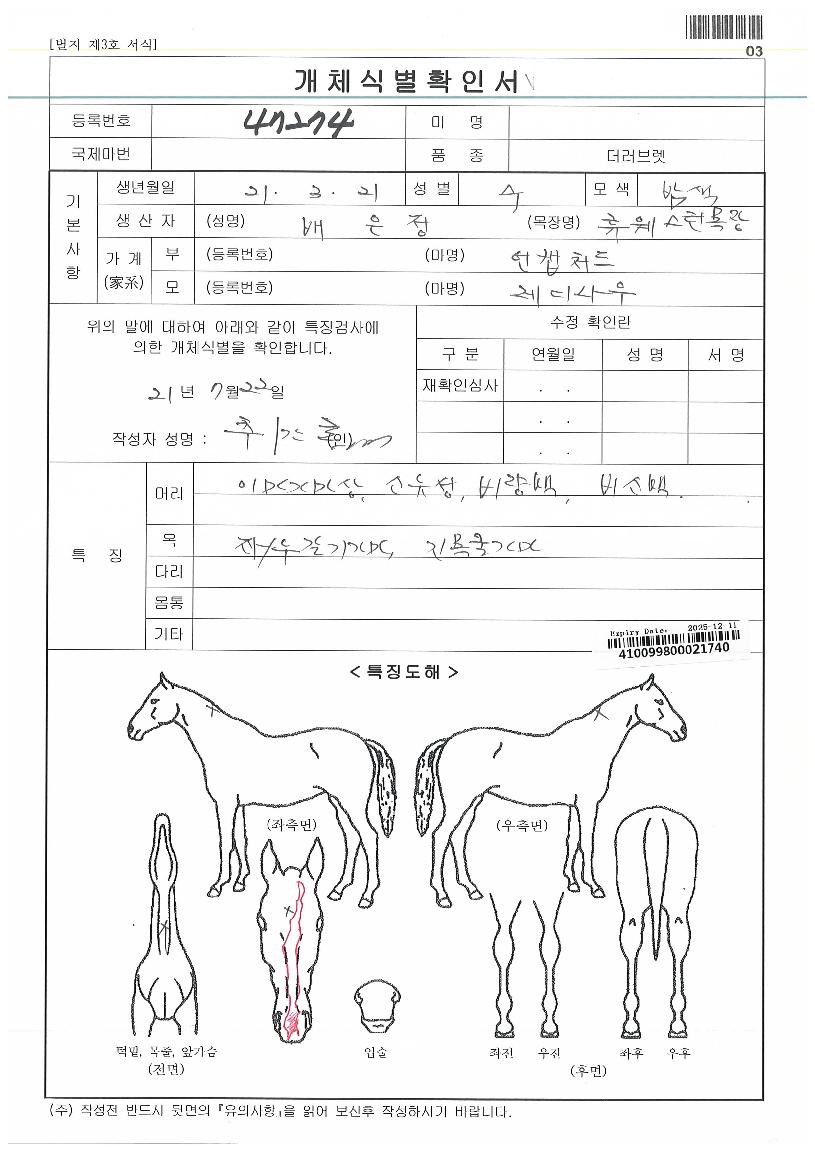 [별지 제3호 서식]
03
개체식별확인서
등록번호 47274 미 명
국제마번 품 종 더러브렛
기본사항
생년월일 21. 3. 21 성 별 수 모 색 밤색
생 산 자 (성명) 배 은 정 (목장명)
가 계 (家系) 부 (등록번호) (마명) 언캡처드
모 (등록번호) (마명) 레디사우
위의 말에 대하여 아래와 같이 특징검사에
의한 개체식별을 확인합니다.
21년 7월22일
작성자 성명 : (인)
수정 확인란
구 분 연월일 성 명 서 명
재확인심사 . .
. .
. .
특 징
머리 유성, 비량백, 비신백.
목
다리
몸통
기타
Expiry Date. 2025-12 11
410099800021740
< 특징도해 >
(좌측면) (우측면)
턱밑, 목줄, 앞가슴 입술 좌전 우전 좌후 우후
(전면) (후면)
(주) 작성전 반드시 뒷면의『유의사항』을 읽어 보신후 작성하시기 바랍니다.